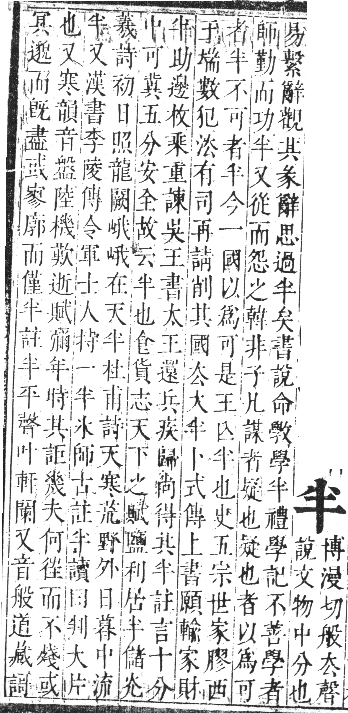 半
博漫切般去聲
說文物中分也
易繫辭觀其彖辭思過半矣書說命斆學半禮學記不善學者
師勤而功半又從而怨之韓非子凡謀者疑也疑也者以爲可
者半不可者半今一國以爲可是王亡半也史五宗世家膠西
于端數犯法有司再請削其國去太半卜式傳上書願輸家財
半助邊枚乘重諫吳王書大王還兵疾歸尚得其半註言十分
中可冀五分安全故云半也食貨志天下之賦鹽利居半儲光
羲詩初日照龍闕峨峨在天半杜甫詩天寒荒野外日暮中流
半又漢書李陵傳令軍士人持一半冰師古註半讀曰判大片
也又寒韻音盤陸機歎逝賦彌年時其詎幾夫何徃而不殘或
冥邈而旣盡或寥廓而僅半註半平聲叶軒蘭又音般道藏謌